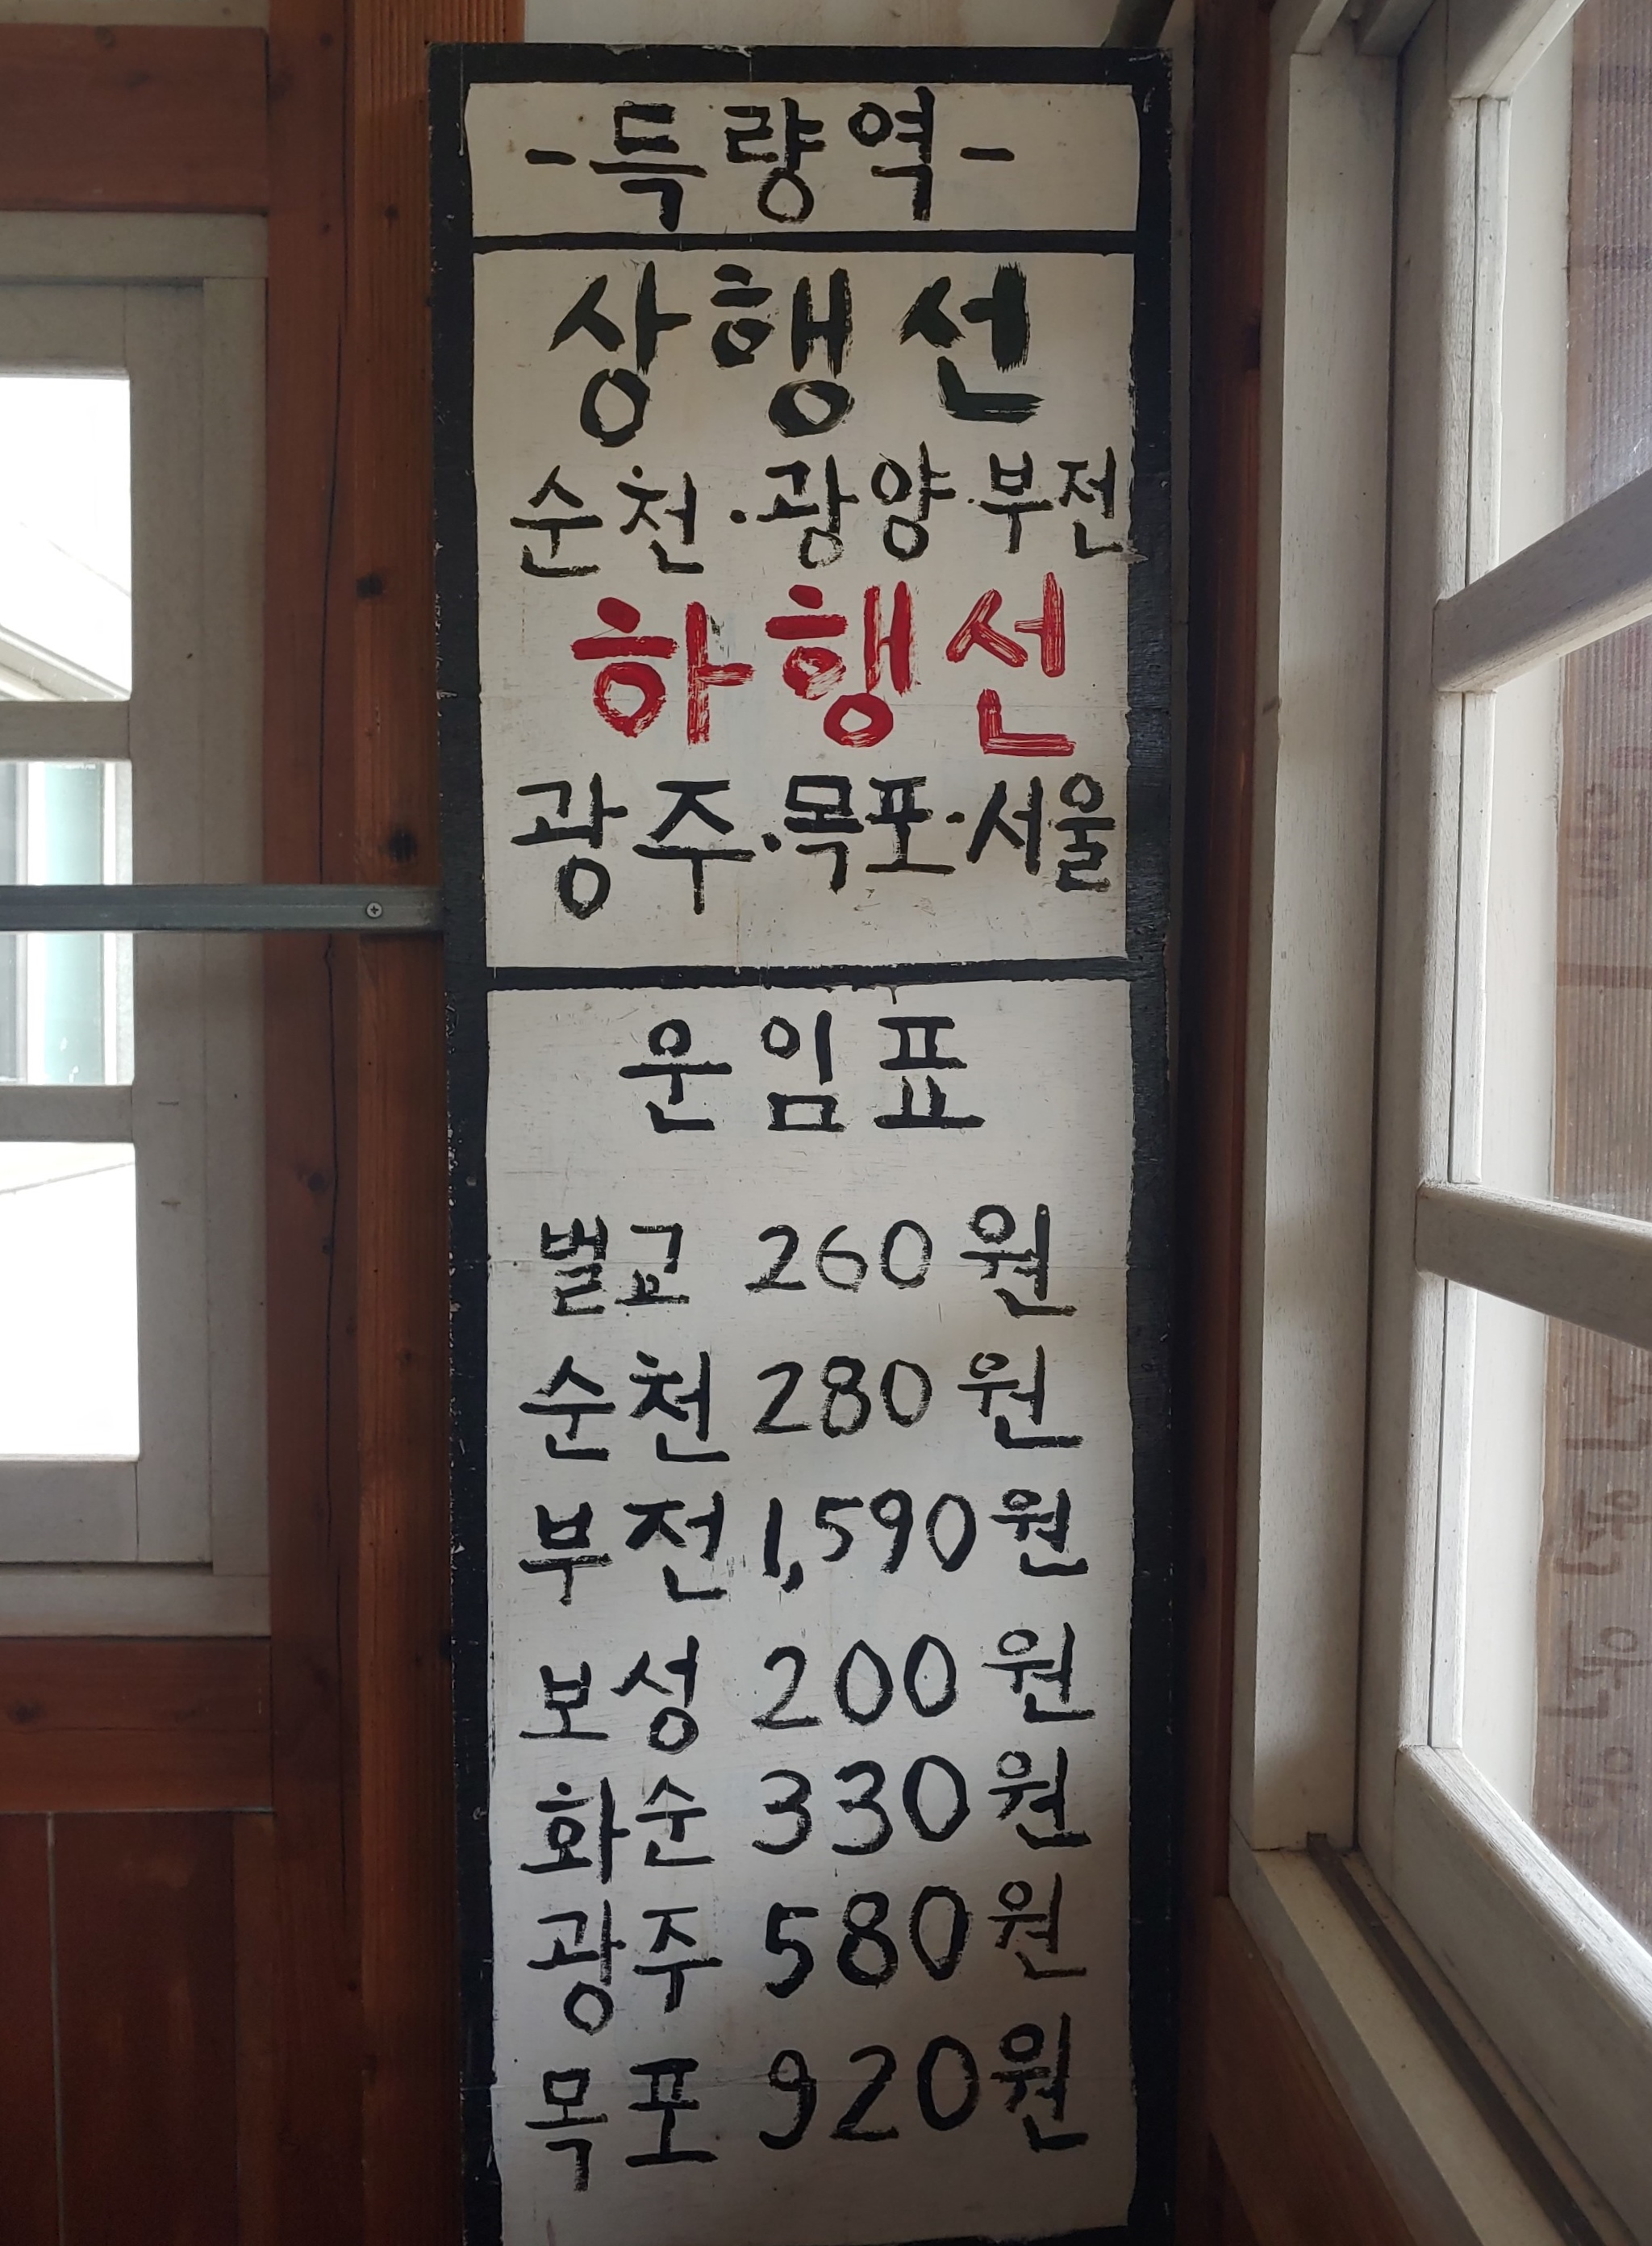 -득량역-
상행선
순천·광양·부전
하행선
광주·목포·서울
운임표
벌교 260원
순천 280원
부전 1,590원
보성 200원
화순 330원
광주 580원
목포 920원